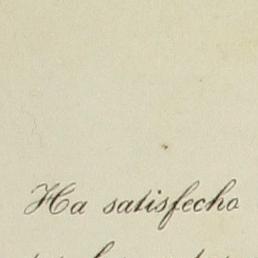 Ha satisfecho